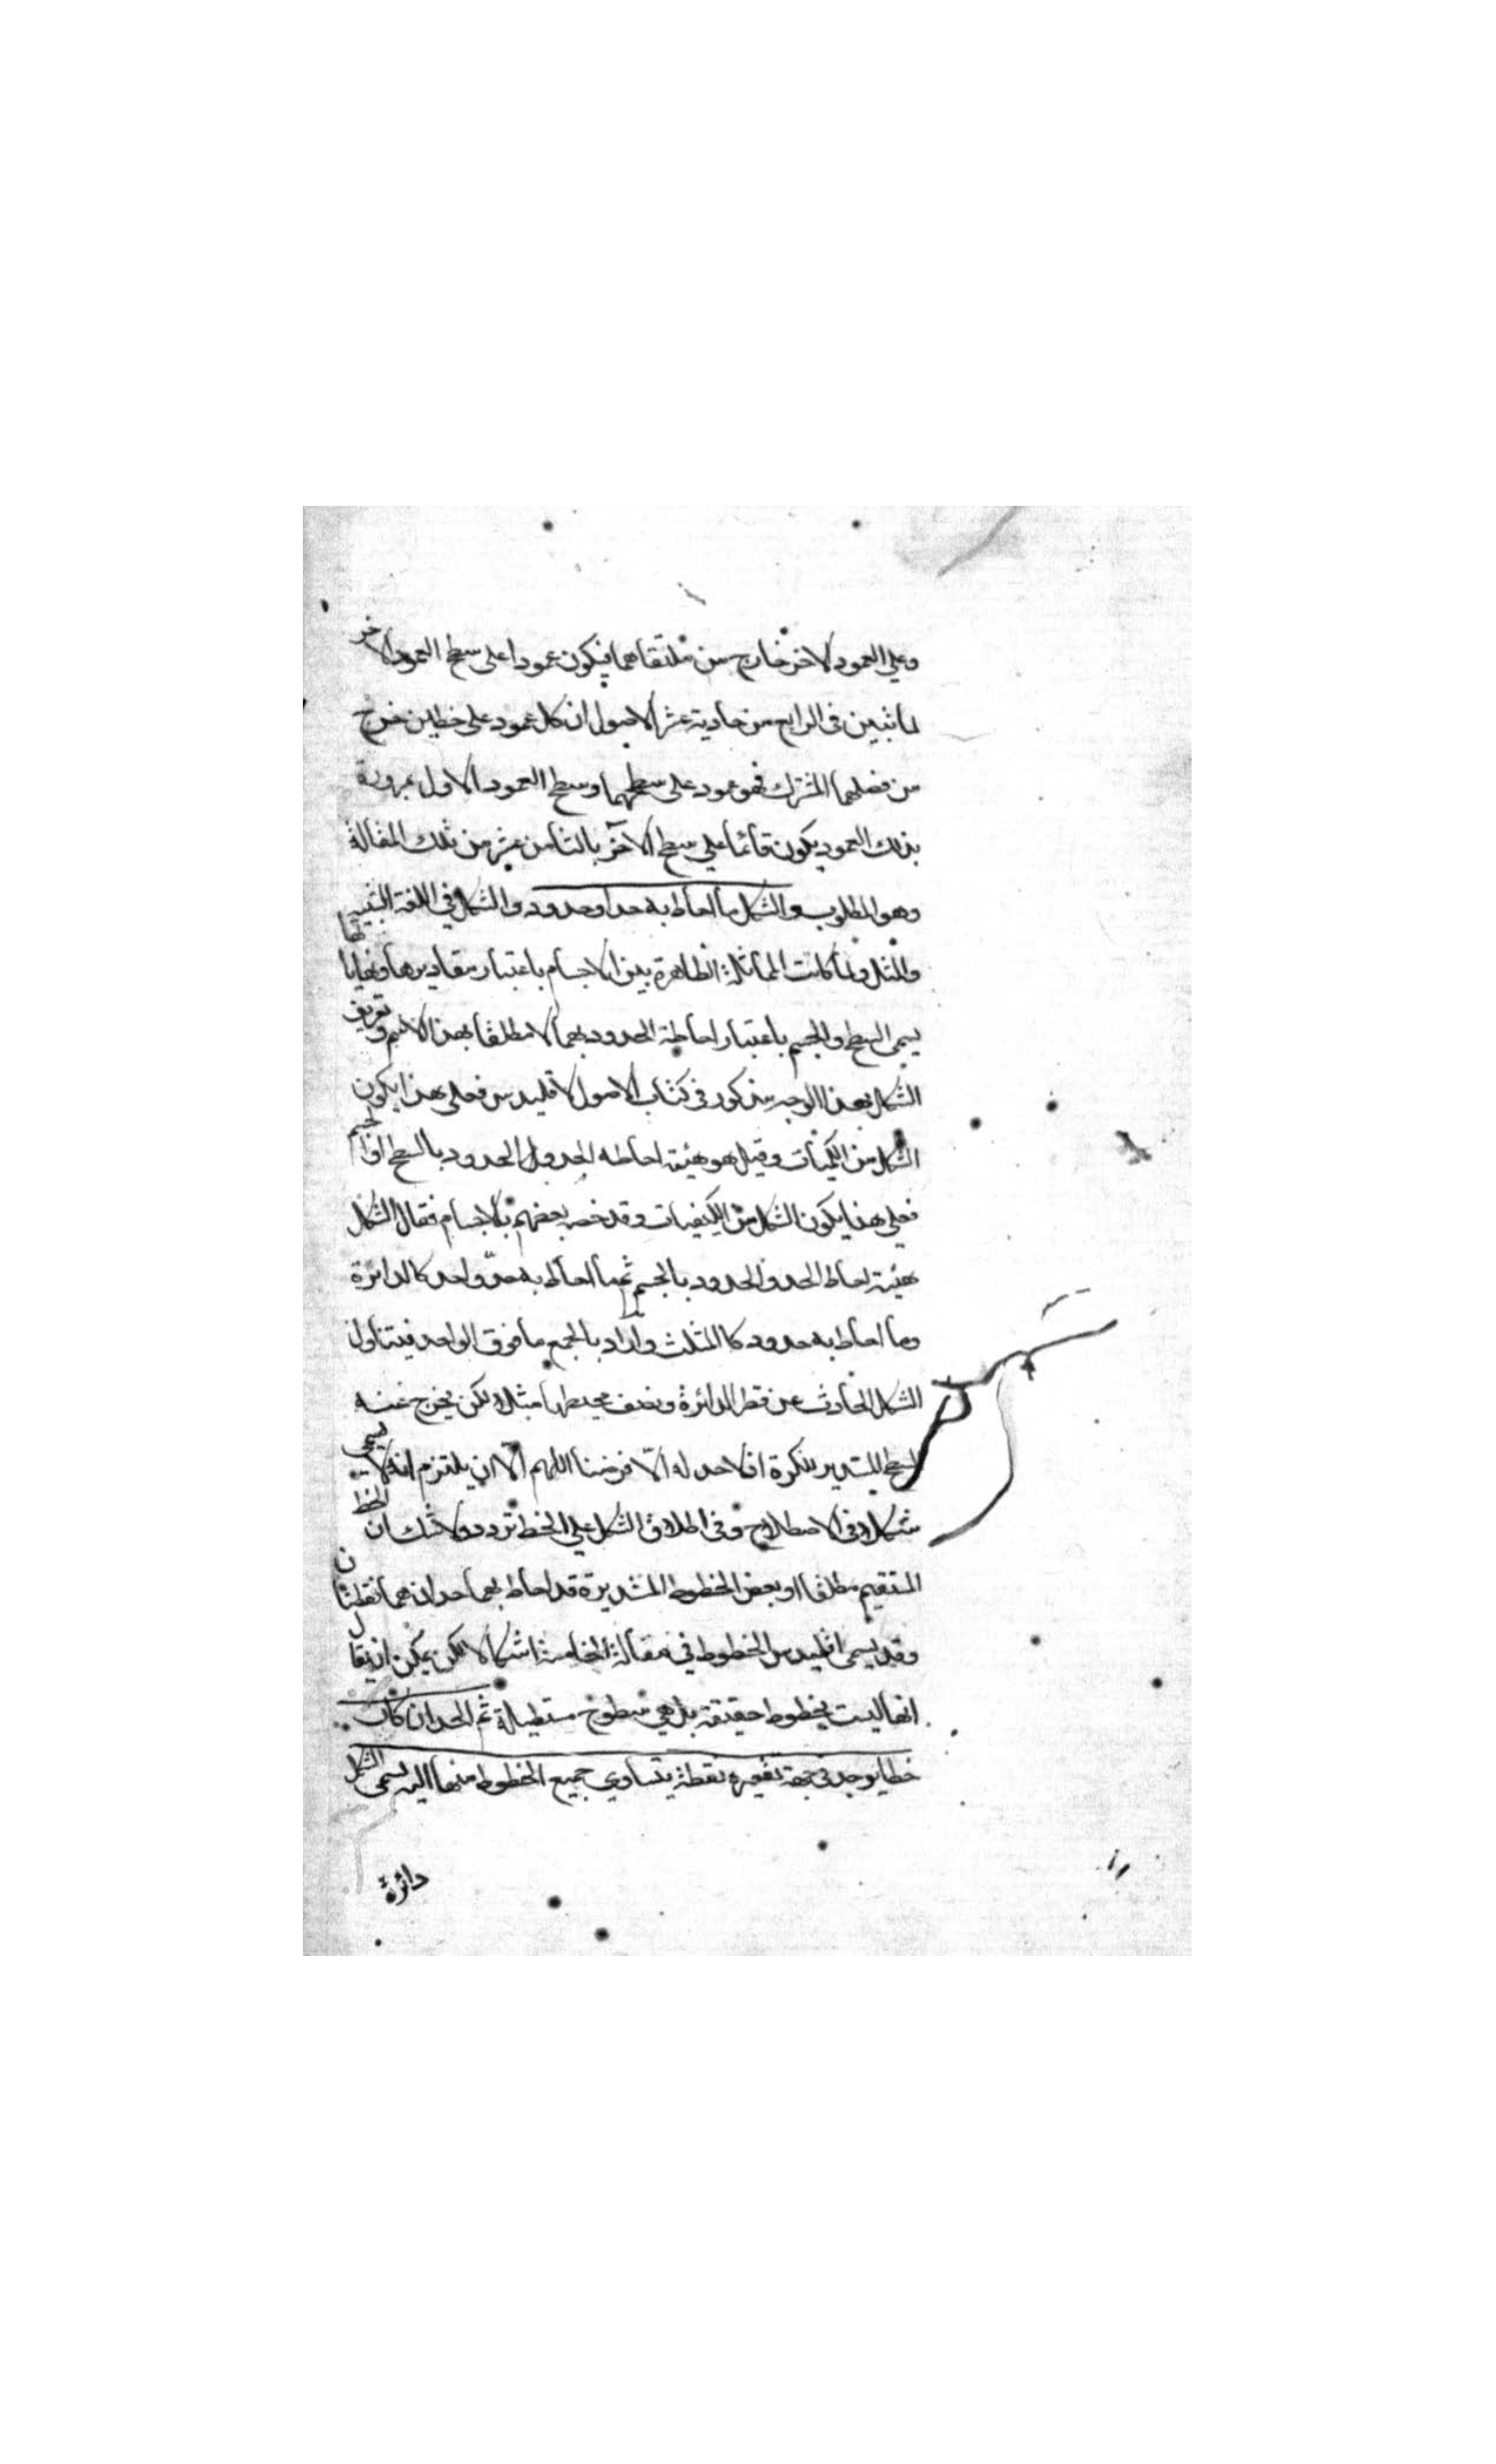 وعلي العمود الاخر خارج من ملتقاهما فيكون عمودا على سطح العمود الاخر
لما تبين في الرابع من حادية عشر الاصول ان كل عمود على خطين خرج
من فصلهما المشترك فهو عمود على سطحهما وسطح العمود الاول لمروره
بذلك العمود يكون قائما علي سطح الآخر بالثامن عشر من تلك المقالة
وهو المطلوب والشكل ما احاط به حد او حدود والشكل في اللغة الشبيه
والمثل ولما كانت المماثلة الظاهرة بين الاجسام باعتبار مقاديرها ونهاياتها
يسمى السطح والجسم باعتبار احاطة الحدود بهما لا مطلقا بهذا الاسم وتعريف
الشكل بهذا الوجه مذكور في كتاب الاصول لاقليدس فعلى هذا يكون
الشكل من الكميات وقيل هو هيئة احاطه الحد او الحدود بالسطح او الجسم
فعلى هذا يكون الشكل من الكيفيات وقد خصه بعضهم بالاجسام فقال الشكل
هيئة احاط الحد والحدود بالجسم ثم ما احاط به حد واحد كالدائرة
وما احاط به حدود كالمثلث واراد بالجمع ما فوق الواحد فيتناول
الشكل الحادث عن قطر الدائرة ونصف محيطها مثلا ولكن يخرج عنه
السطح المستدير للكرة اذ لا حد له الّا فرضنا اللهم الّا ان يلتزم انه لا يسمى
شكلا في الاصطلاح وفى اطلاق الشكل علي الخط تردد ولا شك ان الخط
المستقيم مطلقا او بعض الخطوط المستديرة قد احاط بهما حدان هما نقطتان
وقد يسمى اقليدس الخطوط في مقالة الخامسة اشكالا لكن يمكن ان يقال
انها ليست بخطوط حقيقة بل هي سطوح مستطيلة ثم الحد ان كان
خطا يوجد في جهة تقعيره نقطة يتساوي جميع الخطوط منها اليه يسمى الشكل
دائرة